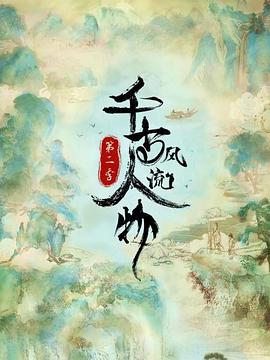 千古风流人物
第二季